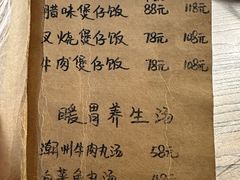 腊味煲仔饭 88元 118元
叉烧煲仔饭 78元 108元
牛肉煲仔饭 78元 108元
暖胃养生汤
潮州牛肉丸汤 58元
鱼丸汤